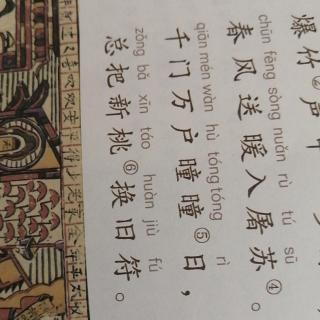 爆竹②声
chūn fēng sòng nuǎn rù tú sū
春风送暖入屠苏④。
qiān mén wàn hù tóng tóng rì
千门万户曈曈⑤日，
zǒng bǎ xīn táo huàn jiù fú
总把新桃⑥换旧符。